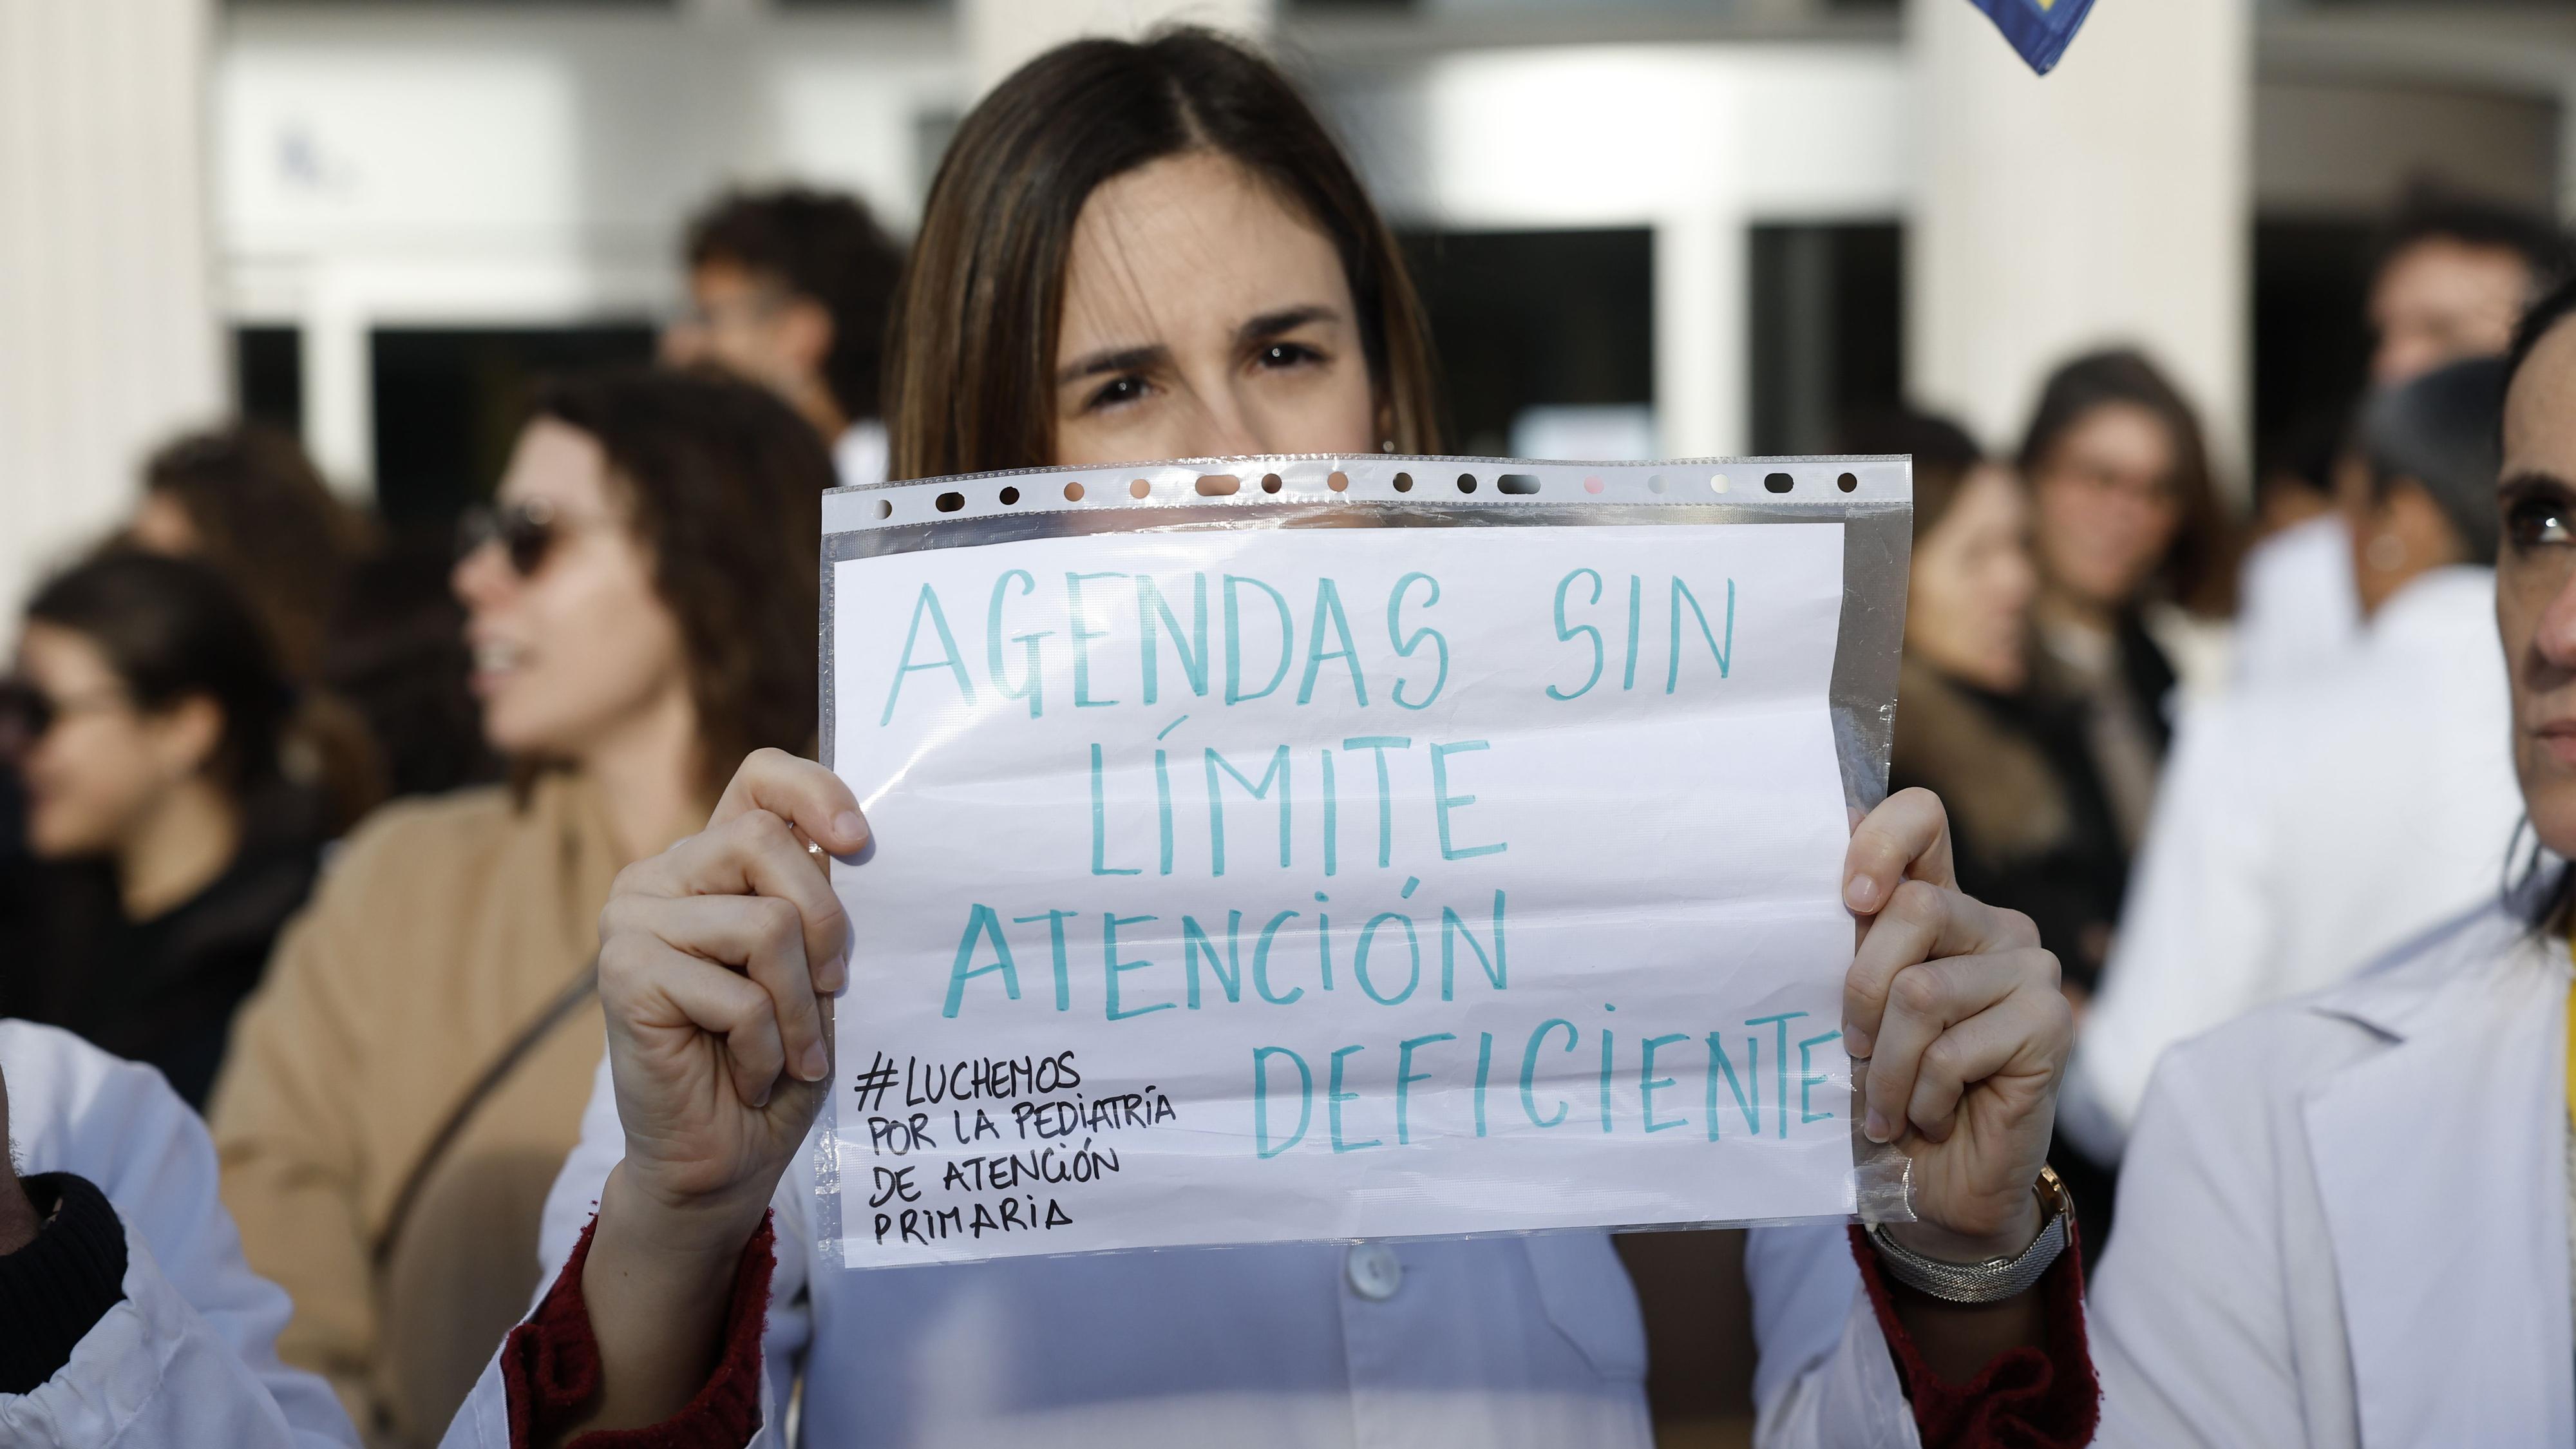 AGENDAS SIN
LÍMITE
ATENCIÓN
DEFICIENTE
#LUCHEMOS
POR LA PEDIATRÍA
DE ATENCIÓN
PRIMARIA